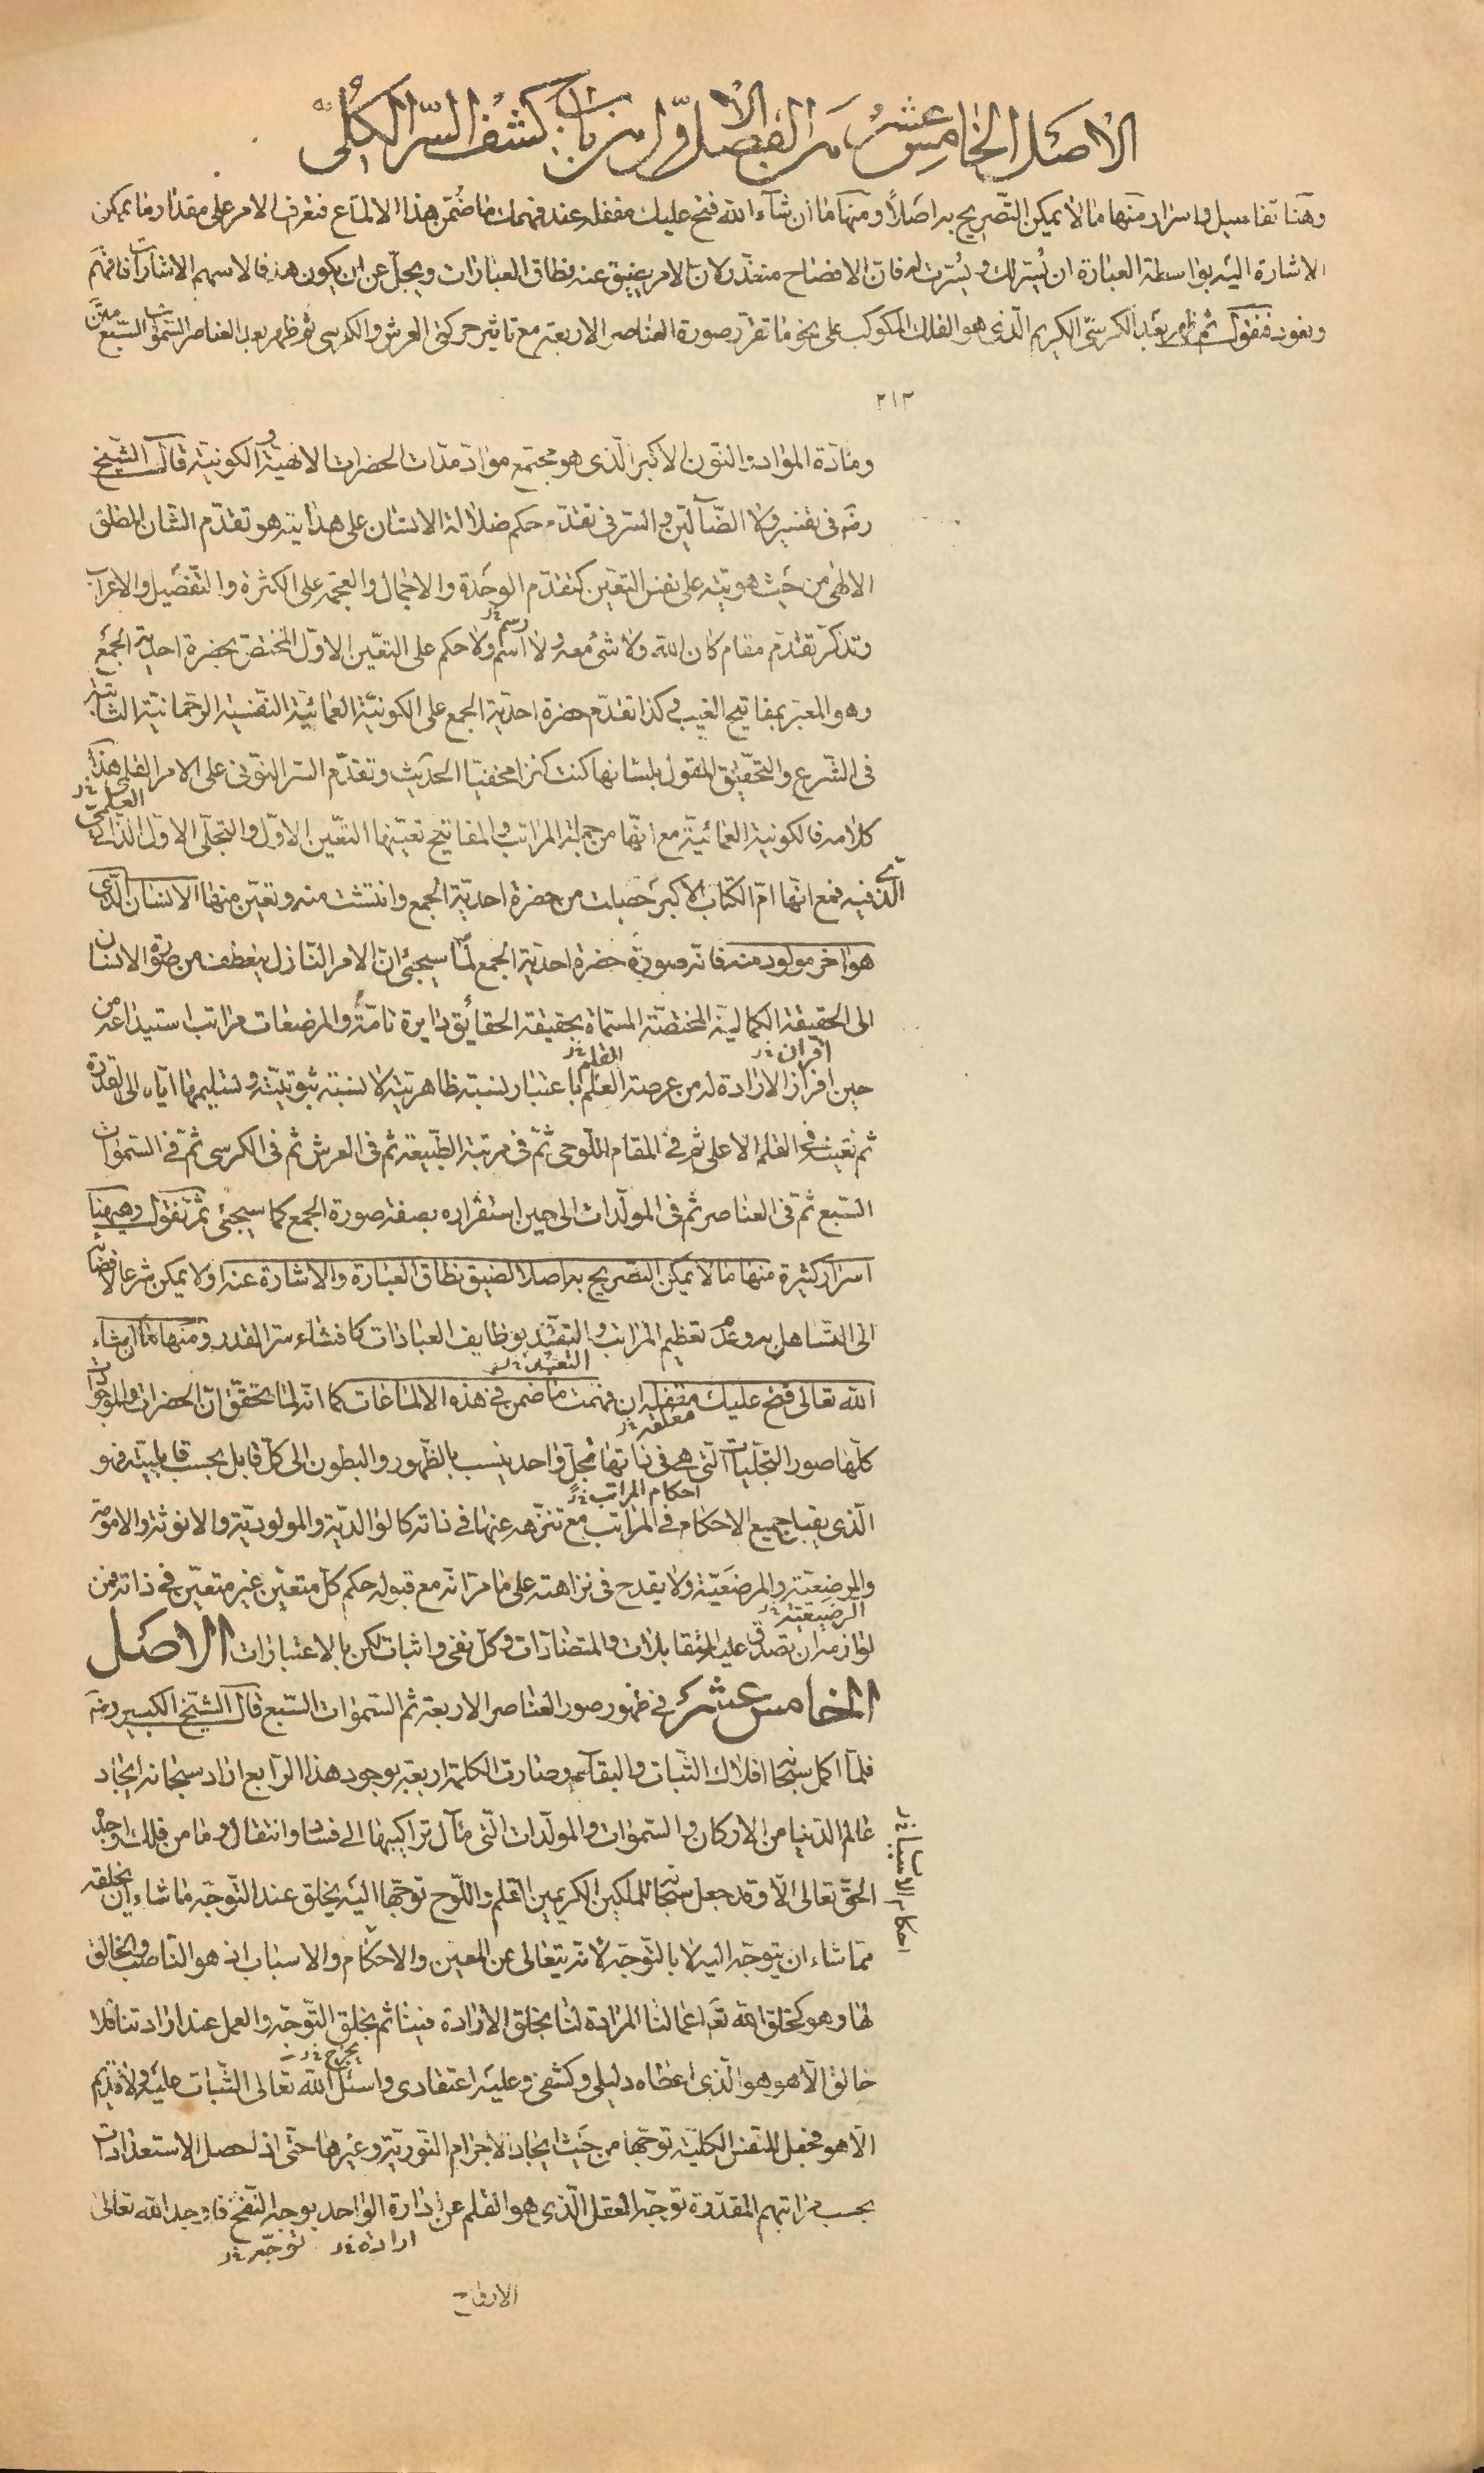 الاصل الخامس عشر من الفصل الاول من باب كشف السّر الكلّى
وهنا تفاصيل واسرار منها ما لا يمكن التّصريح به اصلاً ومنها ما ان شآء الله فتح عليك مقفله عند فهمك ما ضُمّن هذا الالماع فتعرف الامر على مقدار ما يمكن
الاشارة اليه بواسطة العبارة ان يُسّر لك ويُسّرت له فان الافصاح متعذر لان الامر يضيق عنه نطاق العبارات ويجلّ عن ان يكون هدفا لاسهم الاشارات فافهم
ونعود فنقول ثم ظهر بعد الكرسىّ الكريم الّذى هو الفلك المكوكب على نحو ما تقرّر صورة العناصر الاربعة مع تاثير حركتى العرش والكرسى ثم ظهر بعد العناصر السّموات السّبع متن
٢١٣
ومادّة المواد والنّون الاكبر الّذى هو مجتمع مواد مدّات الحضرات الالهيّة والكونيّة قال الشّيخ
رضه فى تفسير ولا الضّآلّين والسّر فى تقدّم حكم ضلالة الانسان على هدايته هو تقدّم الشّان المطلق
الالهى من حيث هويّته على نفس التعيّن كتقدّم الوحدة والاجمال والعجمة على الكثرة والتّفصيل والاعراب
وتذكّر تقدّم مقام كان الله ولا شئ معه ولا اسم ولا حكم على التعيّن الاوّل المختصّ بحضرة احديّة الجمع
رسم خ ل
وهو المعبّر بمفاتيح الغيب وكذا تقدّم حضرة احديّة الجمع على الكونيّة العمائيّة النّفسيّة الرّحمانيّة الثّابتة
فى الشّرع والتّحقيق المقول بلسانها كنت كنزا مخفيّا الحديث وتقدّم السّر النّونى على الامر القلمى هذا
كلامه فالكونية العمائيّة مع انّها من جملة المراتب والمفاتيح تعيّنها التعّين الاوّل والتجلّى الاوّل الذاتى
العلمى خ ل
الّذى فيه فمع انّها امّ الكتاب الاكبر حصلت من حضرة احديّة الجمع وانتشئت منه وتعيّن منها الانسان الّذى
هو اخر مولود منه فانه صورة حضرة احديّة الجمع لما سيجئ ان الامر النّازل ينعطف من صورة الانسان
الى الحقيقة الكماليّة المختصّة المسمّاة بحقيقة الحقائق دايرة تامّة والمرضعات مراتب استيداعه من
حين افراز الارادة له من عرصة العلم باعتبار نسبة ظاهريّته لا نسبة ثبوتيّته وتسليمها ايّاه الى القدرة
اقران خ ل القلم خ ل
ثم تعينه فى القلم الاعلى ثم فى المقام اللّوحى ثمّ فى مرتبة الطّبيعة ثم فى العرش ثم فى الكرسى ثمّ فى السّموات
السّبع ثمّ فى العناصر ثم فى المولّدات الى حين استقراره بصفة صورة الجمع كما سيجئى ثمّ نقول وهيهنا
اسرار كثيرة منها ما لا يمكن التصريح به اصلا لضيق نطاق العبارة والاشارة عنه او لا يمكن شرعا لافضائه
الى التّساهل به وعدم تعظيم المراتب والتقيّد بوظايف العبادات كافشاء سّر القدر ومنها ما ان شاء
الله تعالى فتح عليك مقفله ان فهمت ما ضمن فى هذه الالماعات كما انّه لما تحقّق انّ الحضرات والموجودات
التعبّد خ ل مغلقه خ ل
كلّها صور التجلّيات الّتى هى فى ذاتها تجلّ واحد ينسب بالظّهور والبطون الى كلّ قابل بحسب قابليّته فهو
الّذى يقبل جميع الاحكام فى المراتب مع تنزّهه عنها فى ذاته كالوالديّة والمولوديّة والانوثة والامومة
احكام المراتب خ ل
والمرضِعيّة والمرضَعيّة ولا يقدح فى نزاهته على ما مرّ انّه مع قبوله حكم كلّ متعيّن غير متعيّن فى ذاته فمن
الرضيعيّة خ ل
لوازمه ان تصدق عليه المتقابلات والمتضادّات وكلّ نفى واثبات لكن بالاعتبارات الاصل
الخامس عشر فى ظهور صور العناصر الاربعة ثم السّموات السّبع قال الشّيخ الكبير رضه
فلمّا اكمل سبحانه افلاك الثّبات والبقآء وصارت الكلمة اربعة بوجود هذا الرّابع اراد سبحانه ايجاد
عالم الدّنيا من الاركان والسّموات والمولّدات الّتى مآل تراكيبها الى فساد وانتقال وما من فلك اوجده
الحقّ تعالى الّا وقد جعل سبحانه للملكين الكريمين القلم واللّوح توجّها اليه يخلق عند التّوجّه ما شاء ان يخلقه
احكام الاسباب خ ل
ممّا شاء ان يتوجّه اليه لا بالتّوجّه لانّه يتعالى عن المعين والاحكام والاسباب اذ هو النّاصب والخالق
لها وهو كخلق الله تعالى اعمالنا المرادة لنا يخلق الارادة فينا ثم يخلق التّوجّه والعمل عند ارادتنا فلا
خالق الّا هو هو الّذى اعطاه دليلى وكشفى وعليه اعتقادى واسئل الله تعالى الثّبات عليه ولا قديم
الّا هو فجعل للنفس الكليّة توجّها من حيث ايجاد الاجرام النّوريّة وغيرها حتّى اذ لحصل الاستعدادات
بحسب مراتبهم المقدّرة توجّه العقل الّذى هو القلم عن ادارة الواحد بوجه النّفخ فاوجد الله تعالى
ارادة خ ل توجّه خ ل
الارواح